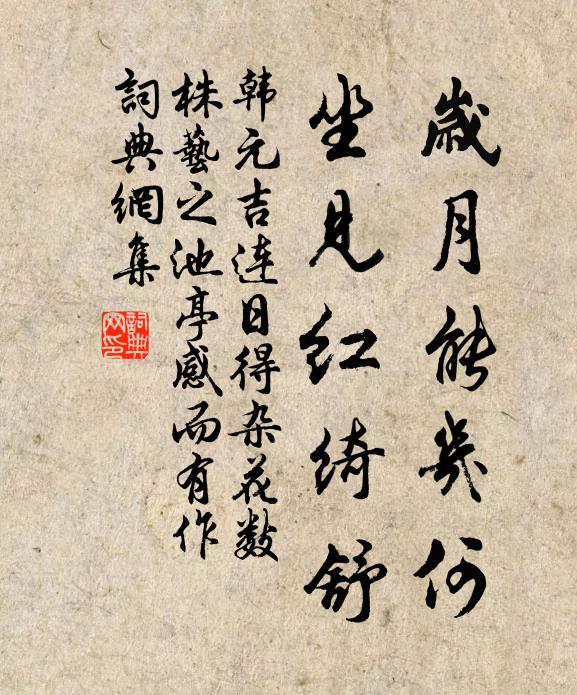 歲月能幾何
坐見紅綺舒
韩元吉連日得杂花數
株藝之池亭感而有作
詞典網集
詞典网印